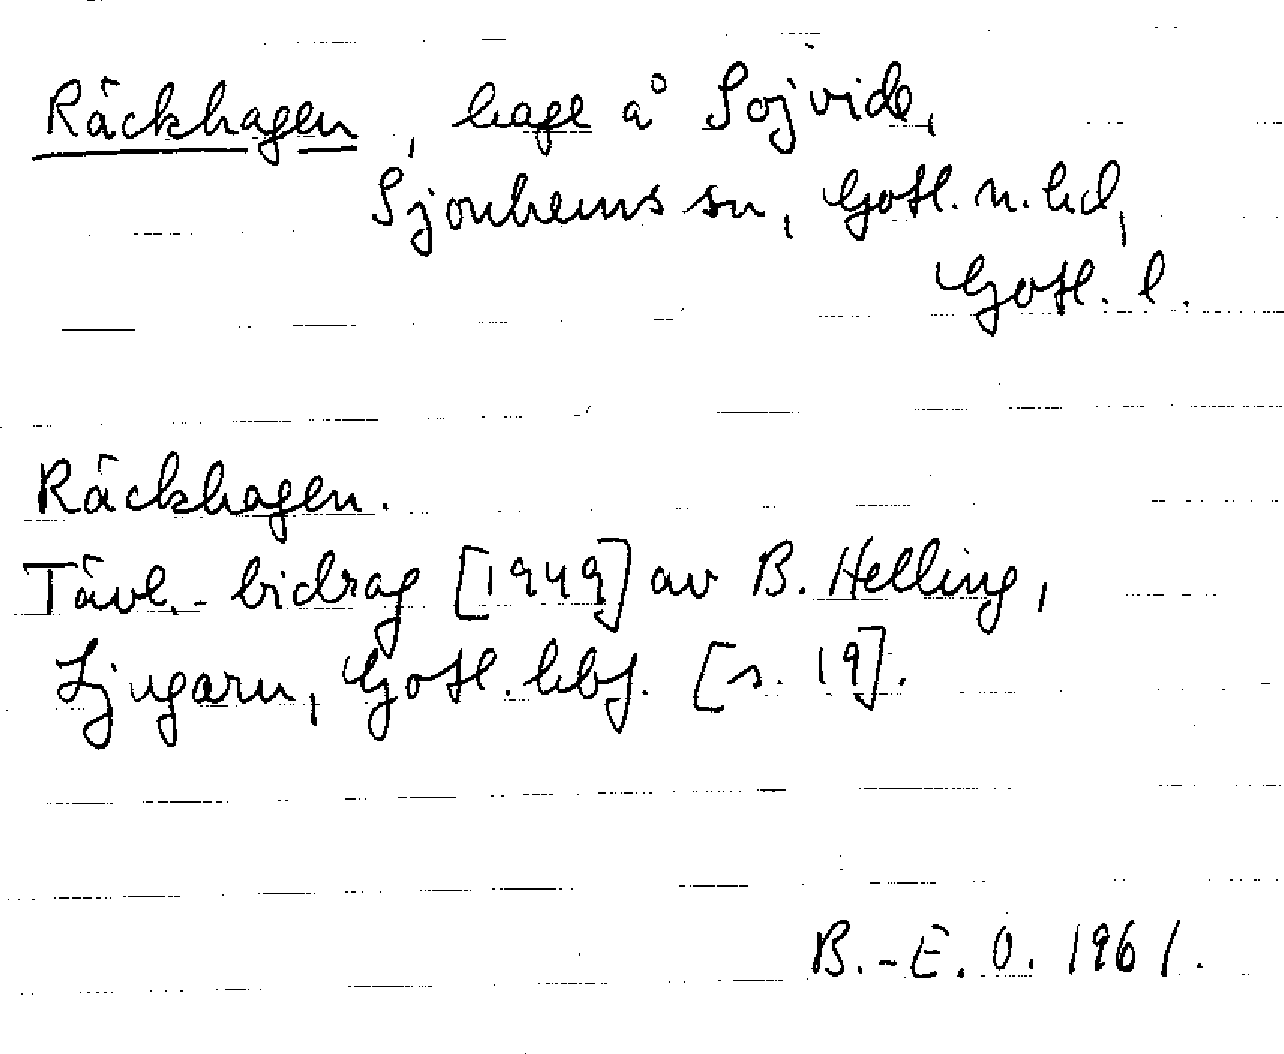 Räckhagen, hage å Sojvide,
Sjonhems sn, Gotl. n. hd,
Gotl. l.
Räckhagen.
Tävl.-bidrag [1949] av B. Helling,
Ljugarn, Gotl. hbf. [s. 19].
B.-E. O. 1961.